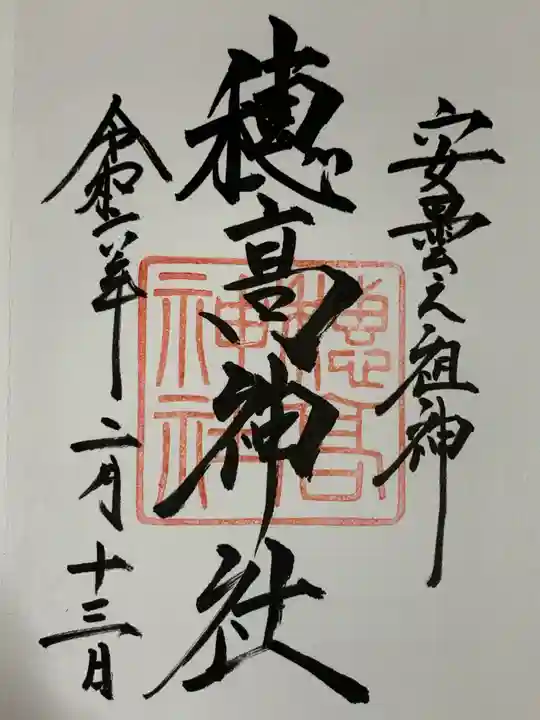 安曇之祖神
穂高神社
穂高神社
令和六年 二月 十三日